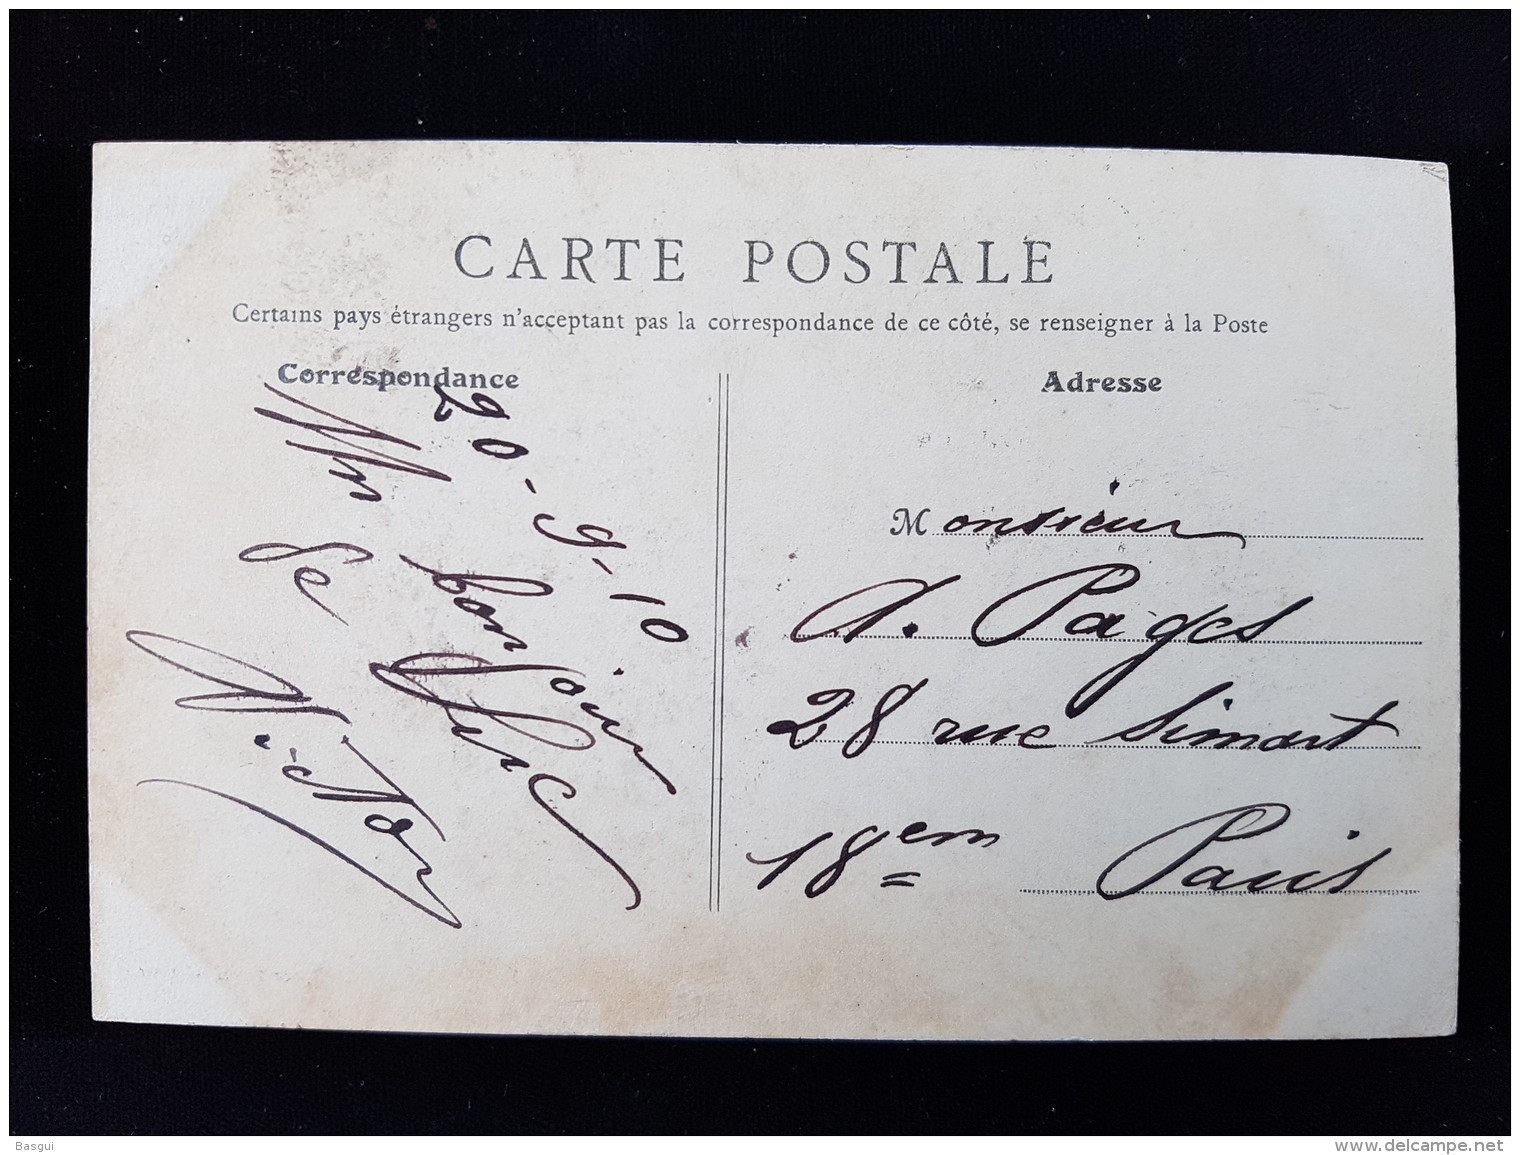 CARTE POSTALE
Certains pays étrangers n'acceptant pas la correspondance de ce côté, se renseigner à la Poste
Correspondance
20-9-10
Un bonjour
de
Adresse
Monsieur
A. Pages
28 rue Simart
18em Paris
Basgui
www.delcampe.net